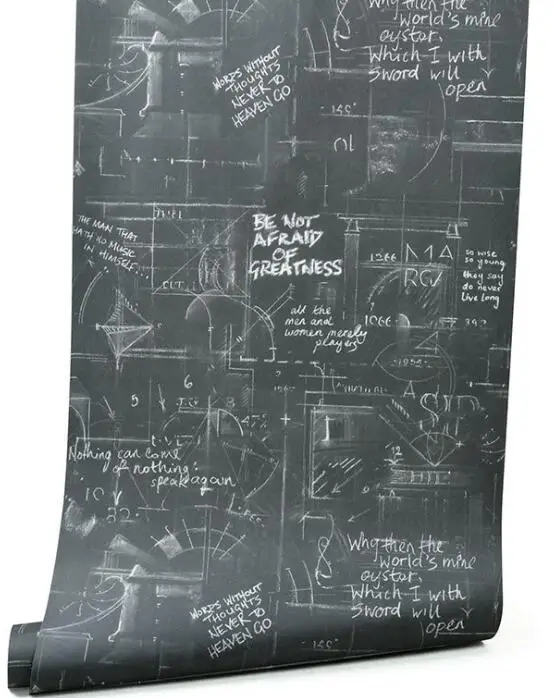 Why then the
world's mine
oyster,
Which I with
Sword will
open
WORDS WITHOUT
THOUGHTS
NEVER TO
HEAVEN GO
THE MAN THAT
HATH NO MUSIC
IN HIMSELF...
BE NOT
AFRAID
OF
GREATNESS
1266
MA
so wise
so young
they say
do never
live long
all the
men and
women merely
players
1066
392
6
5
3
Nothing can come
of nothing:
speak again
12
10
32
Why then the
world's mine
oyster,
Which I with
Sword will
open
WORDS WITHOUT
THOUGHTS
NEVER TO
HEAVEN GO